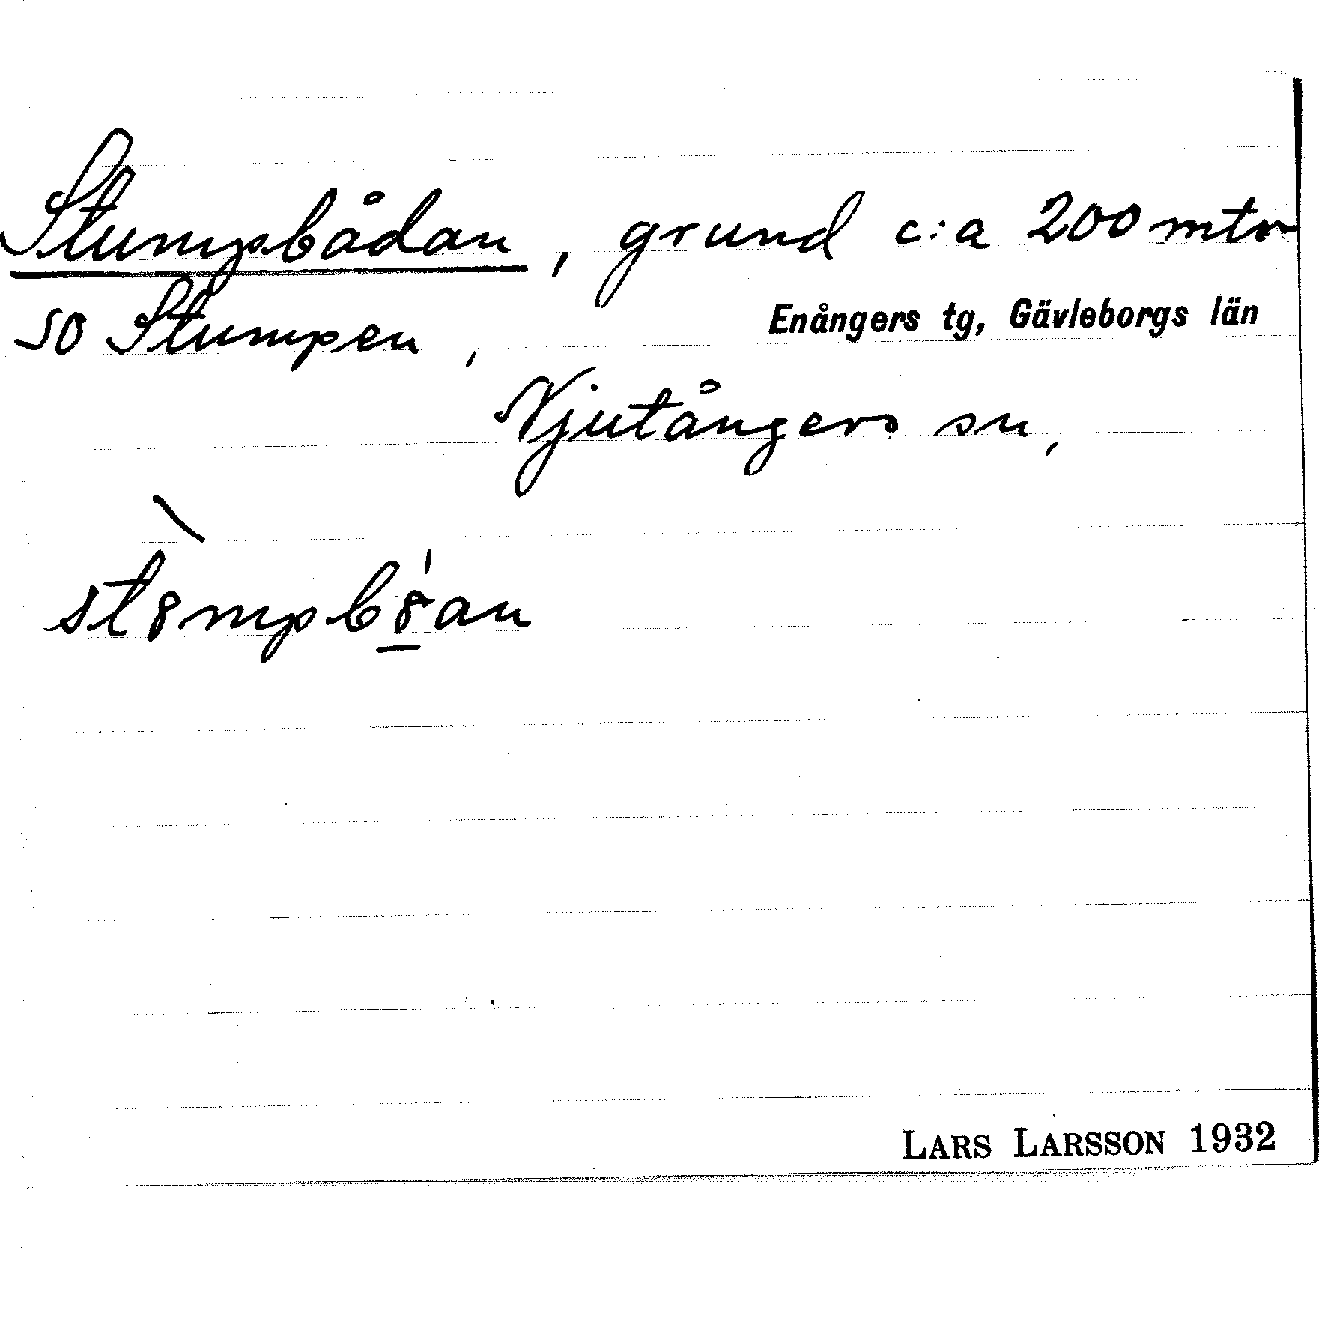 Stumpbådan, grund c:a 200 mtr
SO Stumpen,
Enångers tg, Gävleborgs län
Njutångers sn,
st8mpb8an
LARS LARSSON 1932